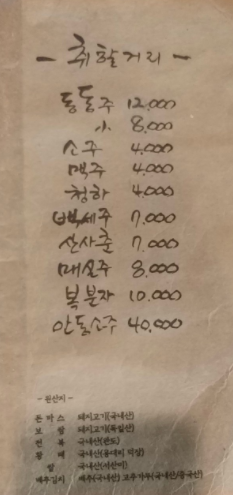 - 취할거리 -
동동주 12,000
小 8,000
소주 4,000
맥주 4,000
청하 4,000
백세주 7,000
산사춘 7,000
매실주 8,000
복분자 10,000
안동소주 40,000
- 원산지 -
돈까스 돼지고기(국내산)
보쌈 돼지고기(독일산)
전복 국내산(완도)
황태 국내산(용대리 덕장)
쌀 국내산(서산미)
배추김치 배추(국내산) 고추가루(국내산/중국산)